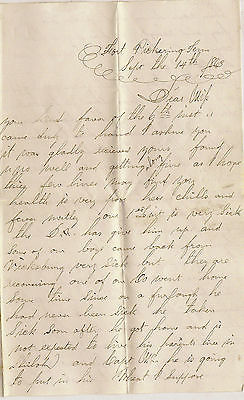 Fort Pickering Tenn
Sept the 14th 1863
Dear Wife
your kind favor of the 6th inst is
came duly to hand I ashure you
it was gladly recieved yours found
us well and getting fine as I hope
they few lines may find you
health is very poor hear chills and
fever mutley your is very Sick
the D.S. has give him up and
Some of our boys came back from
Vicksburg very Sick but they are
recruiting one of our Co went home
Some time since on a furlough he
had never been Sick he taken
Sick Soon after he got home and is
not expected to live his parents live in
and Capt is going
to put in his I Suppose